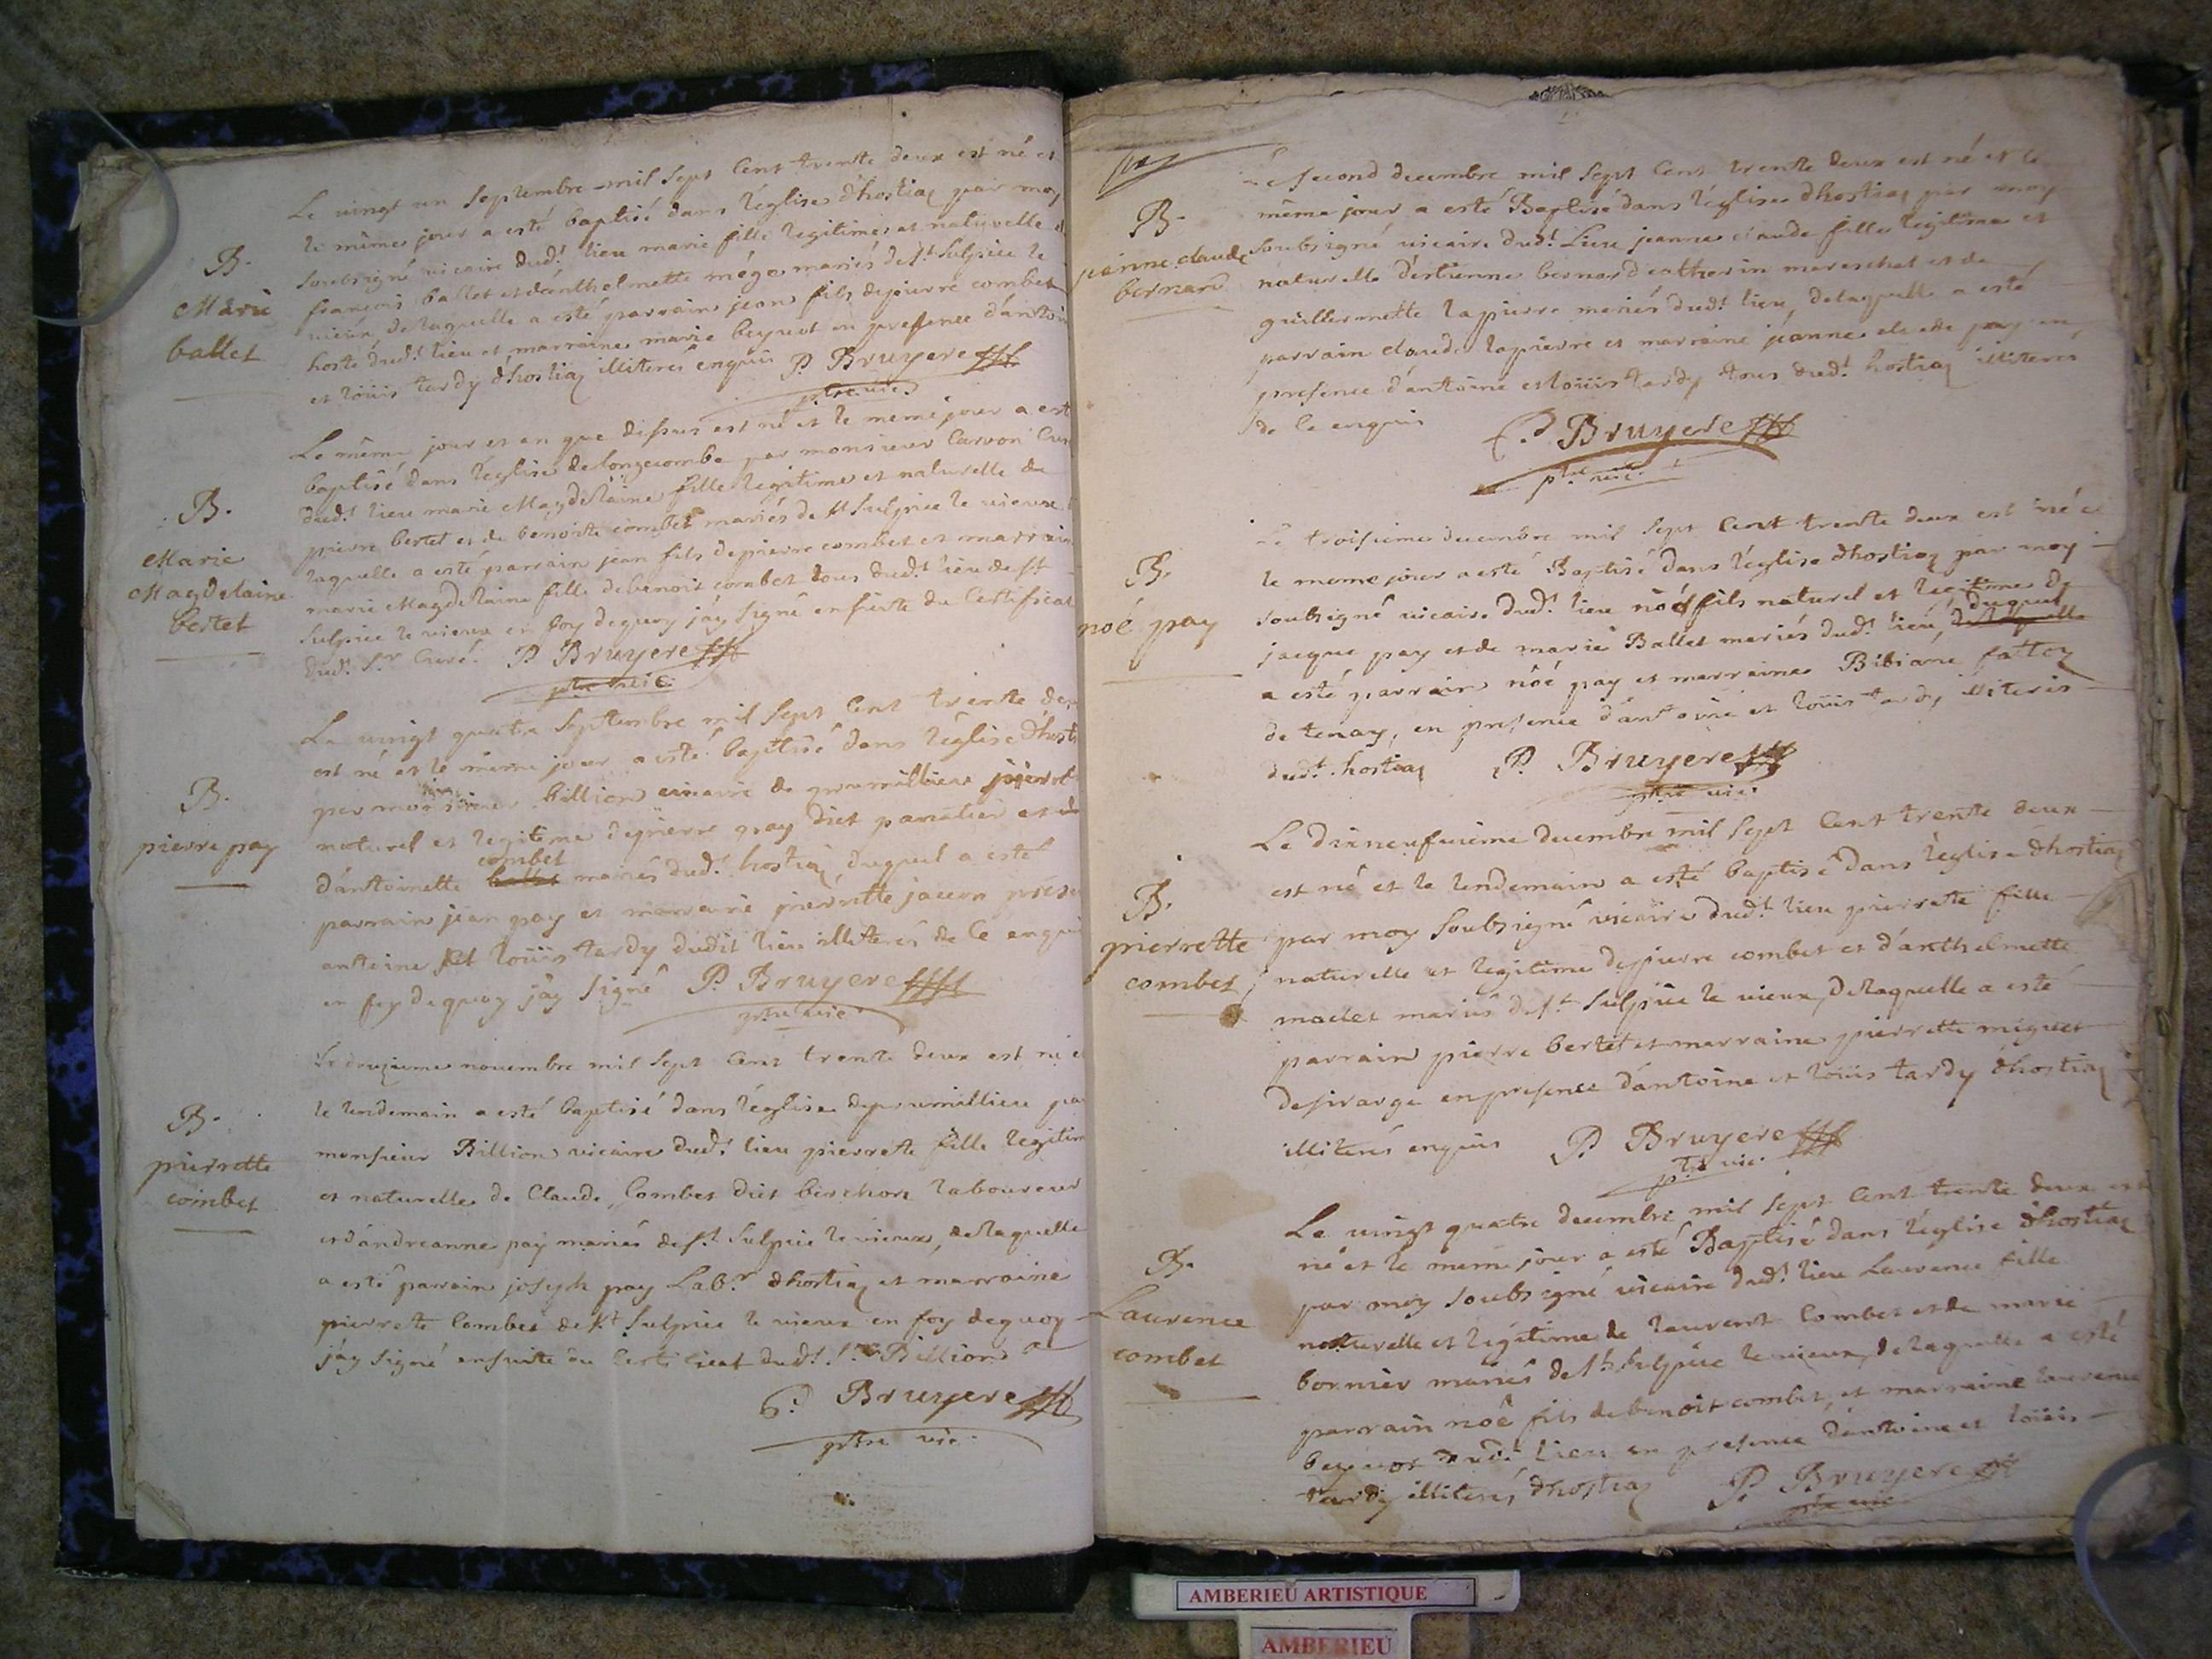 B.
Marie
ballet
Le vingt un Septembre mil Sept Cent trente deux est né et
le même jour a esté baptisé dans l'église d'hostiaz par moy
soubsigné vicaire dud.t lieu marie fille legitime et naturelle de
françois ballet et d'anthelmette mége mariés de s.t Sulpice le
vieux, de laquelle a esté parrain jean fils de pierre combet
hoste dud.t lieu et marraine marie beyuet en presence d'antoine
et loüis tardy d'hostiaz illiterés enquis P. Bruyere
ptre vic.
B.
Marie
Magdelaine
bertet
Le même jour et an que dessus est né et le meme jour a esté
baptisé dans l'église de longecombe par monsieur Carron Curé
dud.t lieu marie Magdelaine fille legitime et naturelle de
pierre bertet et de benoite combet mariés de st Sulpice le vieux
laquelle a esté parrain jean fils de pierre combet et marraine
marie Magdelaine fille de benoit combet tous dud.t lieu de st
Sulpice le vieux en foy dequoy j'ay signé en suite du Certificat
dud. S.r Curé. P. Bruyere
ptre vic.
B.
pierre pay
Le vingt quatre Septembre mil Sept Cent trente deux
est né et le même jour a esté baptisé dans l'église d'hostiaz
par monsieur billion vicaire de proumillieu pierre
naturel et legitime de pierre pay dict panatier et de
combet
d'antoinette ballet mariés dud.t hostiaz, duquel a esté
parrain jean pay et marraine pierrette jacron présence
antoine et loüis tardy dudit lieu illiterés de Ce enquis
en foy dequoy j'ay signé P. Bruyere
ptre vic.
B.
pierrette
combet
Le douzieme novembre mil Sept Cent trente deux est né et
le lendemain a esté baptisé dans l'église de proumillieu par
monsieur Billion vicaire dud.t lieu pierrette fille legitime
et naturelle de Claude Combet dict berchon laboureur
et d'andreanne pay mariés de s.t Sulpice le vieux, de laquelle
a esté parrain joseph pay Lab.r d'hostiaz et marraine
pierrete Combet de s.t Sulpice le vieux en foy dequoy
j'ay signé ensuite du Certificat dud.t S.r Billion
P. Bruyere
ptre vic.
B.
jeanne claude
bernard
Le second decembre mil Sept Cent trente deux est né et le
même jour a esté Baptisé dans l'église d'hostiaz par moy
soubsigné vicaire dud.t Lieu jeanne claude fille legitime et
naturelle d'estienne bernard catherin mareschal et de
guillermette lapierre mariés dud.t lieu, de laquelle a esté
parrain claude lapierre et marraine jeanne claude pay en
presence d'antoine et loüis tardy tous dud.t hostiaz illiterés
de Ce enquis P. Bruyere
ptre vic.
B.
noé pay
Le troisieme decembre mil Sept Cent trente deux est né et
le meme jour a esté Baptisé dans l'église d'hostiaz par moy
soubsigné vicaire dud.t lieu noé fils naturel et legitime de
duquel
jacque pay et de marie Ballet mariés dud.t lieu, de laquelle
a esté parrain noé pay et marraine Bibiane fattoz
de tenay, en presence d'antoine et loüis tardy illiterés
dud.t hostiaz P. Bruyere
ptre vic.
B.
pierrette
combet
Le dixneufvieme decembre mil Sept Cent trente deux
est né et le lendemain a esté baptisé dans l'église d'hostiaz
par moy Soubsigné vicaire dud.t lieu pierrette fille
naturelle et legitime de pierre combet et d'anthelmette
maclet mariés de s.t Sulpice le vieux, de laquelle a esté
parrain pierre bertet et marraine pierrette miguet
de sirarge en presence d'antoine et loüis tardy d'hostiaz
illiterés enquis P. Bruyere
ptre vic.
B.
Laurence
combet
Le vingt quatre decembre mil Sept Cent trente deux est
né et le meme jour a esté Baptisé dans l'église d'hostiaz
par moy Soubsigné vicaire dud.t lieu Laurence fille
naturelle et legitime de laurent Combet et de marie
bornier mariés de s.t Sulpice le vieux, de laquelle a esté
parrain noé fils de benoit combet, et marraine laurence
dud.t lieu en presence d'antoine et loüis
tardy illiterés d'hostiaz P. Bruyere
ptre vic.
AMBERIEU ARTISTIQUE
AMBERIEU